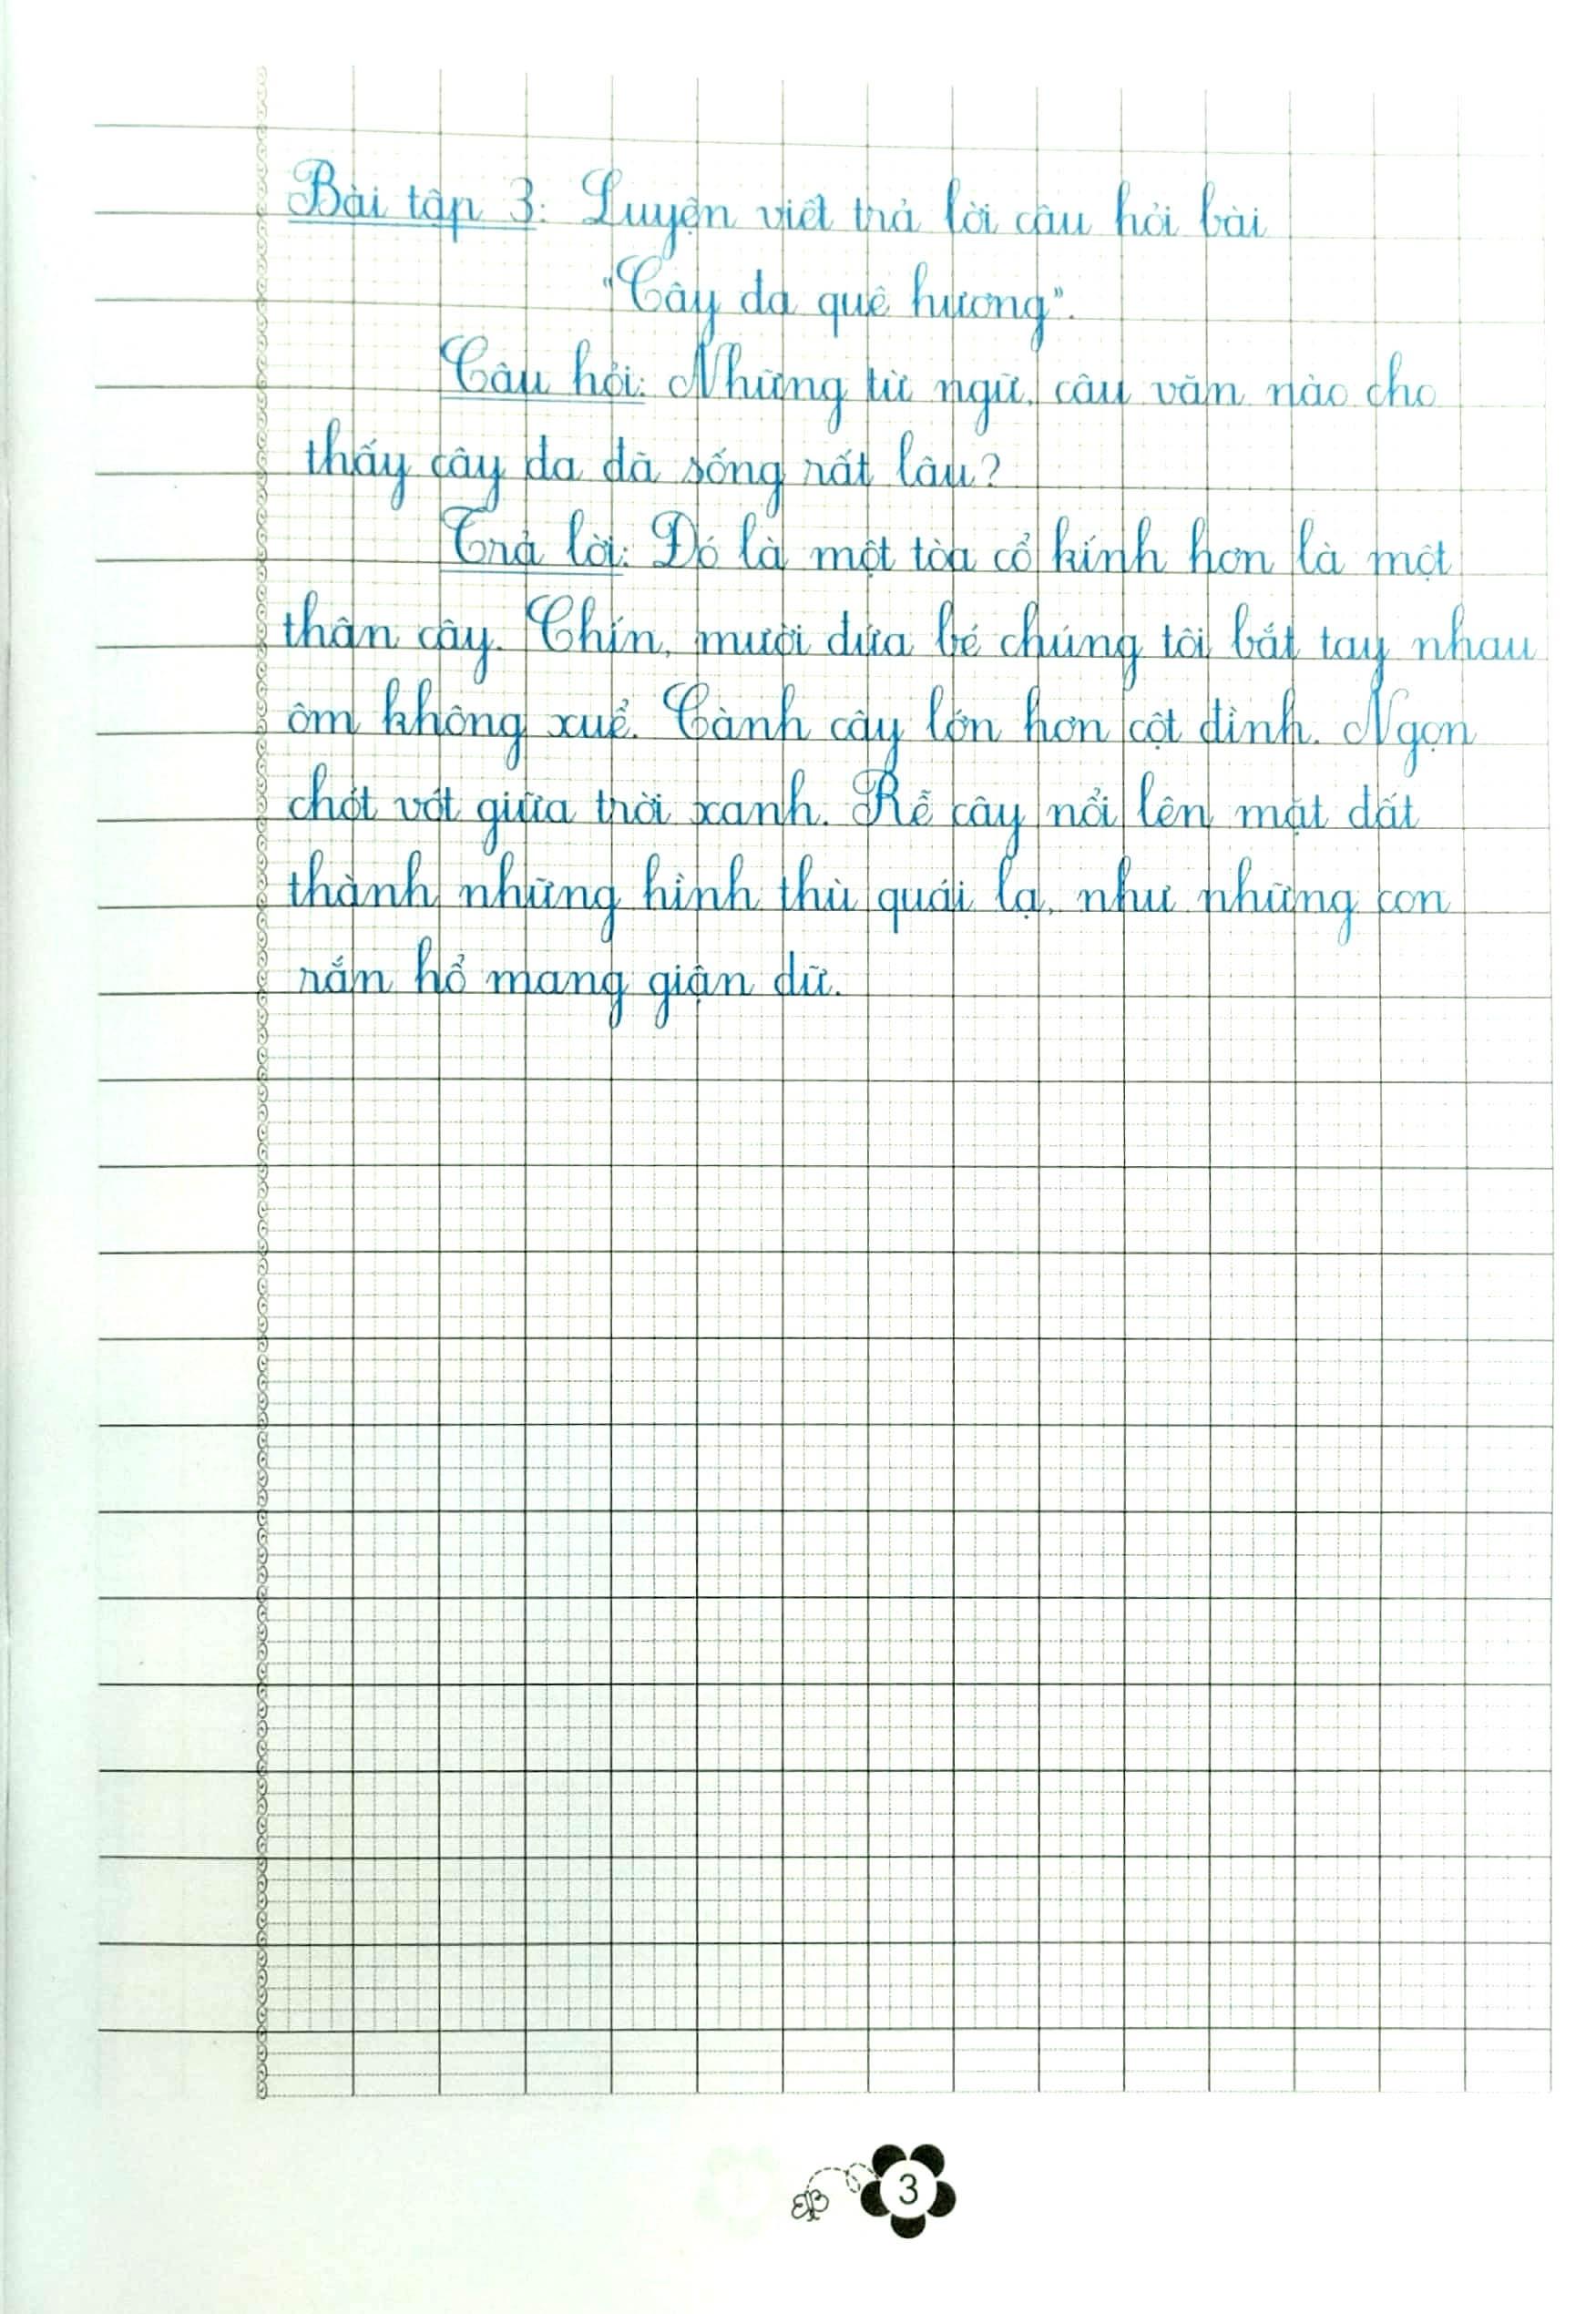 Bài tập 3: Luyện viết trả lời câu hỏi bài
"Cây đa quê hương".
Câu hỏi: Những từ ngữ, câu văn nào cho
thấy cây đa đã sống rất lâu?
Trả lời: Đó là một tòa cổ kính hơn là một
thân cây. Chín, mười đứa bé chúng tôi bắt tay nhau
ôm không xuể. Cành cây lớn hơn cột đình. Ngọn
chót vót giữa trời xanh. Rễ cây nổi lên mặt đất
thành những hình thù quái lạ, như những con
rắn hổ mang giận dữ.
3